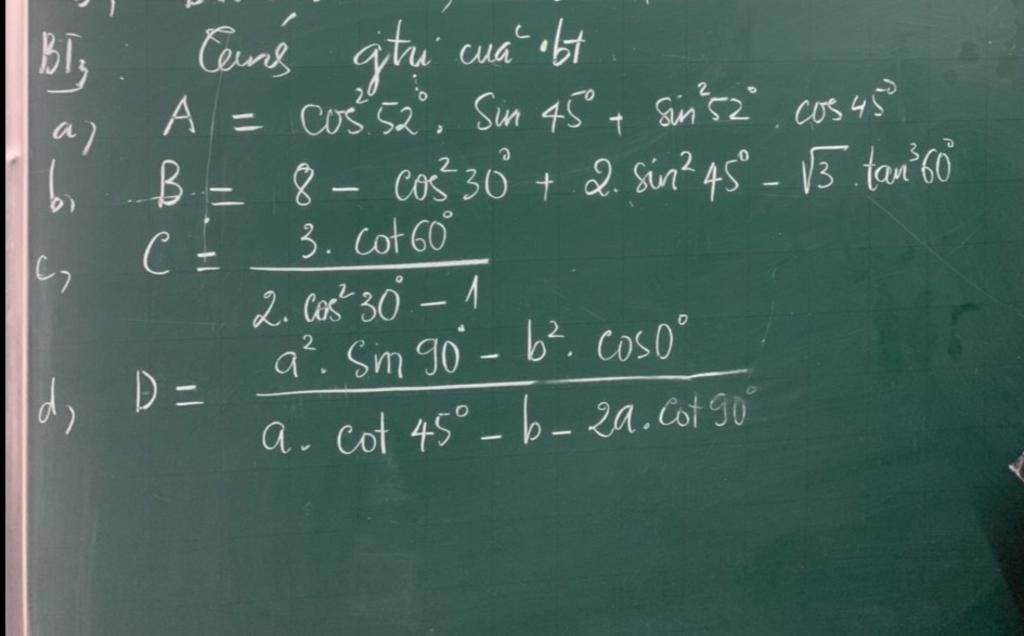 BT3: Tính gtrị của bt
a, A = cos²52°. Sin 45° + sin²52°. cos45°
b, B = 8 - cos²30° + 2. sin²45° - √3. tan³60°
c, C = (3. cot60°) / (2. cos²30° - 1)
d, D = (a². Sin 90° - b². cos0°) / (a. cot 45° - b - 2a. cot 90°)